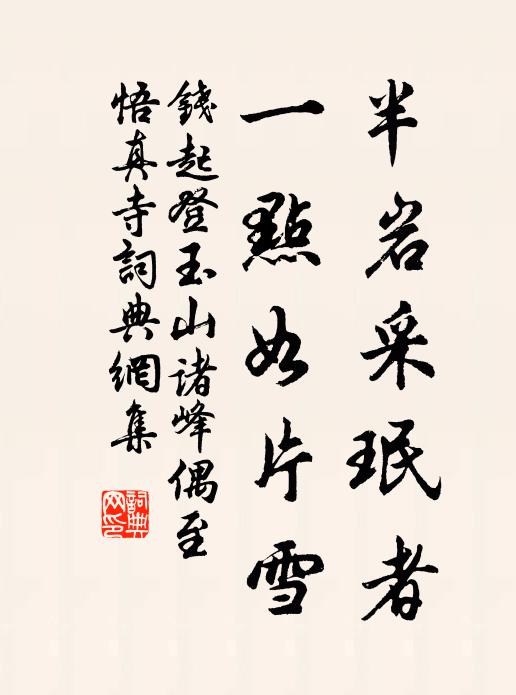 半岩采珉者
一點如片雪
錢起登玉山诸峰偶至
悟真寺詞典網集
詞典
网印